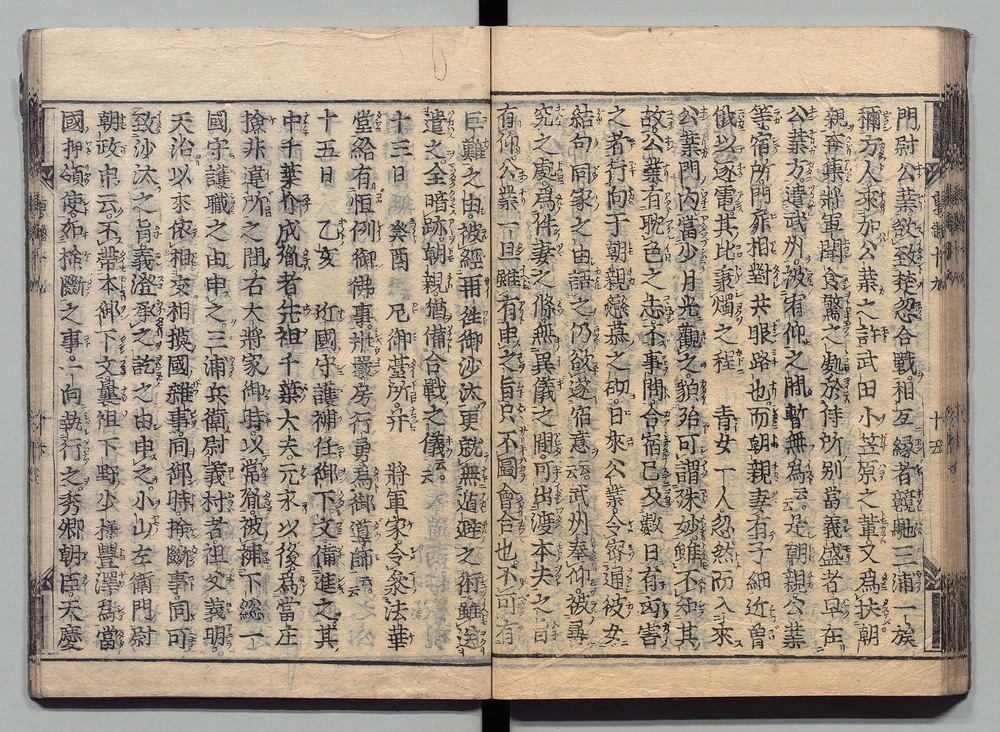 門尉公業欲致楚忽合戰相互縁者競馳三浦一族
禰方人來加公業之許武田小笠原之輩又爲扶朝
親奔集將軍聞食驚之處於侍所別當義盛者早在
公業方遣武州被宥仰之間暫無爲云云是朝親公業
等宿所門並相對共眼路也而朝親妻有子細近曾
俄以逐電其比秉燭之程 青女一人忽然而入來
公業門内當少月光觀之貌殆可謂殊妙雖不知其
故公業有耽色之志不事問合宿已及數日有凶害
之者行向于朝親戀慕之砌日來公業令容通彼女
結句同家之由語之仍欲遂宿意云云武州奉仰被尋
究之處爲件妻之條無異儀之間可出渡本夫之旨
有仰公業一旦雖有申之旨只不圖會合也不可有
巨難之由被經再往御沙汰更就無道避之術雖送
遣之全暗跡朝親猶備合戰之儀云云
十三日 癸酉 尼御臺所并 將軍家令參法華
堂給有恒例御佛事莊嚴房行勇爲御導師云云
十五日 乙亥 近國守護補任御下文備進之其
中千葉介成胤者先祖千葉大夫元永以後爲當庄
撿非違所之間右大將家御時以常胤被補下總一
國守護職之由申之三浦兵衛尉義村者祖父義明
天治以來依相交相摸國雜事同御時撿斷事同可
致沙汰之旨義澄承之訖之由申之小山左衛門尉
朝政申云不帶本御下文曩祖下野少掾豐澤爲當
國押領使如撿斷之事一向執行之秀郷朝臣天慶